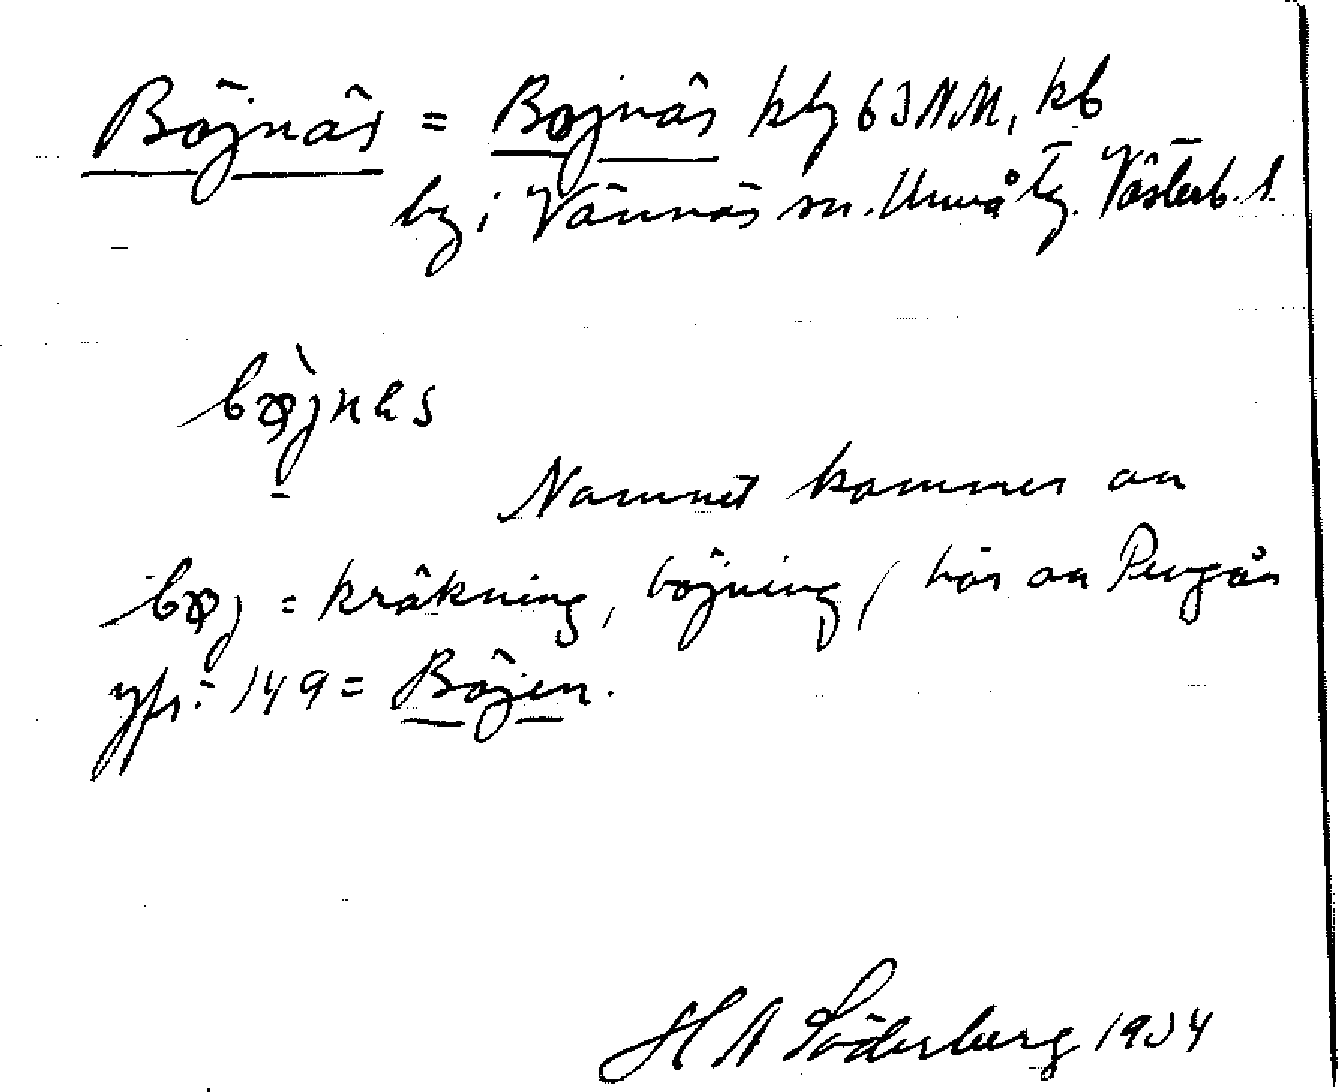 Böjnäs = Bøjnäs kbg 63 NM, kb
by i Vännäs sn. Umeå tg. Västerb. l.
bø̀jnes
Namnet kommer av
bøj = krökning, böjning, här av Pengån
jfr: 149 = Böjen.
H N Söderberg 1934